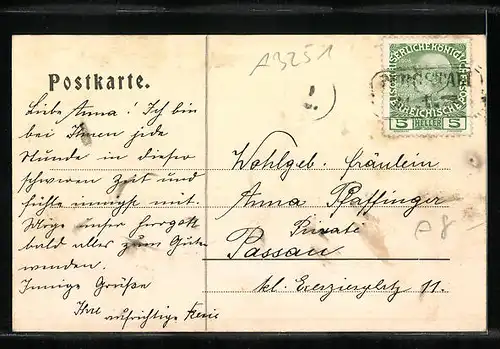 A3251
Postkarte.
Liebe Anna! Ich bin
bei Ihnen jede
Stunde in dieser
schweren Zeit und
fühle innigst mit.
Möge unser Herrgott
bald alles zum Guten
wenden.
Innige Grüße
Ihre aufrichtige
KAISERLICHE KÖNIGLICHE
ÖSTERREICHISCHE
5 HELLER 5
Wohlgeb. Fräulein
Anna Pfaffinger
Private
Passau
kl. Exerzierplatz 11.
A8-